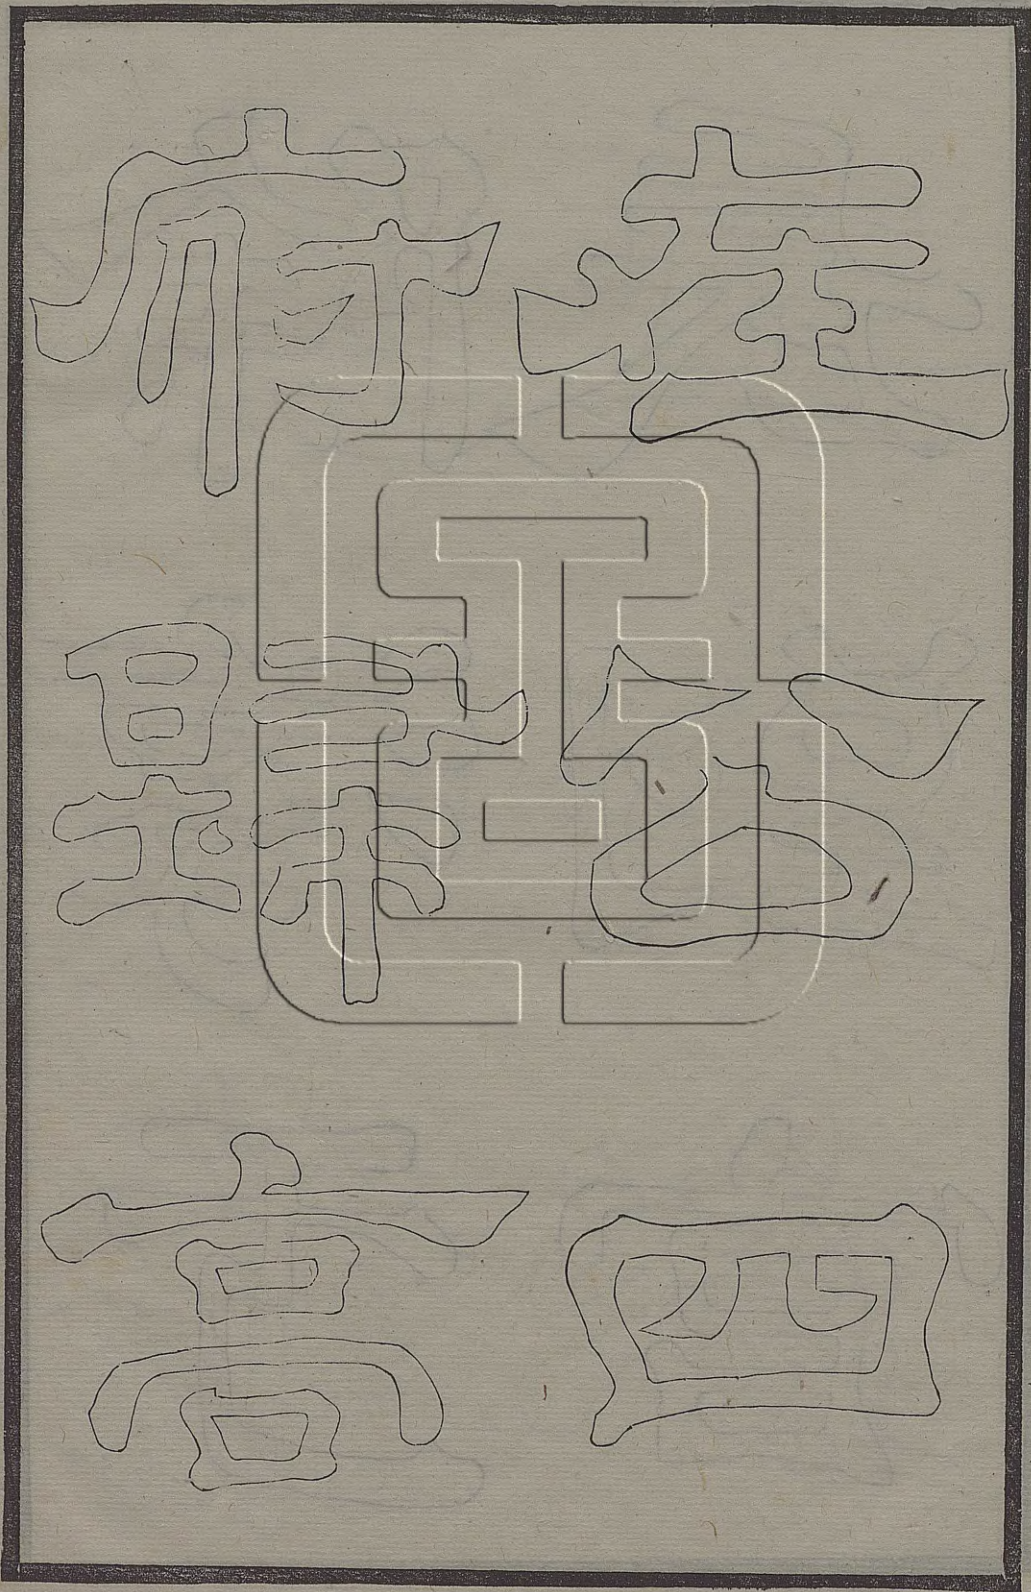 在公四
府歸高